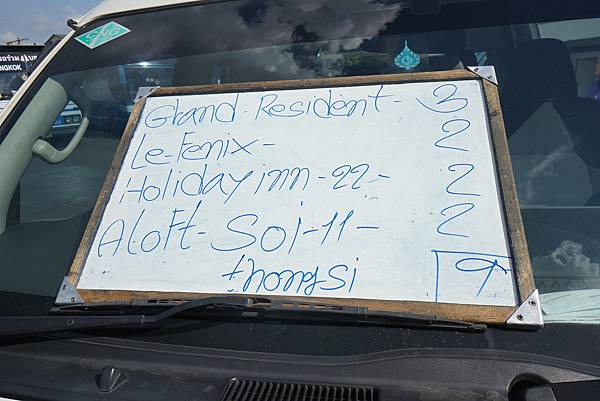 CNG
BANGKOK
Grand Resident- 3
Le-Fenix- 2
Holiday inn-22- 2
Aloft-Soi-11- 2
thongsi 9